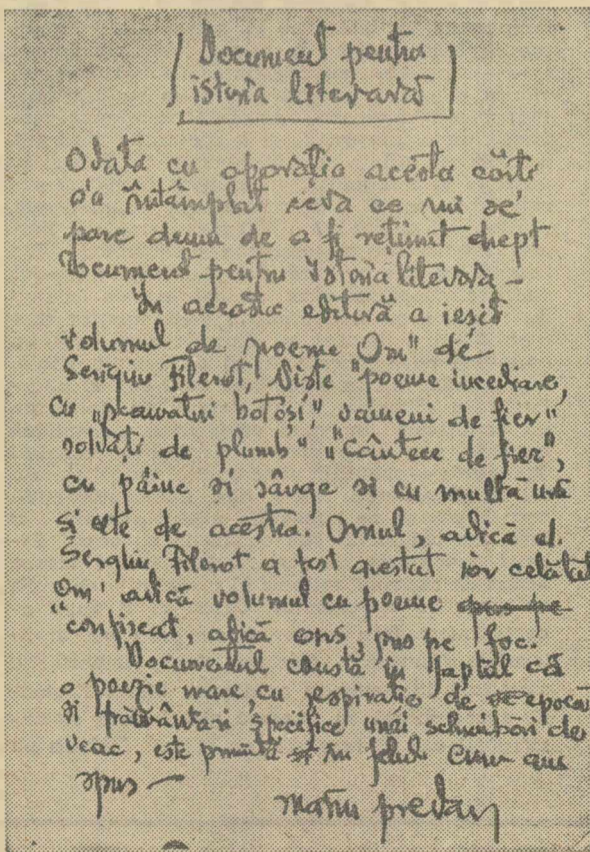 Document pentru
istoria literară
Odată cu apariția acestei cărți
s'a întâmplat ceva ce mi se
pare demn de a fi reținut drept
Document pentru istoria literară –
În această editură a ieșit
volumul de poeme "Om" de
Serigiu Filerot, Niște "poeme incediare,
cu "scamatori botoși", oameni de fier"
soldați de plumb" "Cântece de fier",
cu pâine si sânge si cu multă ură
Si alte de acestea. Omul, adică el.
Sergiu Filerot a fost arestat iar celălalt
"Om" adică volumul cu poeme
"confiscat, adică ars, pus pe foc.
Documentul constă în faptul că
o poezie mare, cu respirație de epocă
si frământări specifice unei schimbări de
veac, este primită în felul cum am
spus –